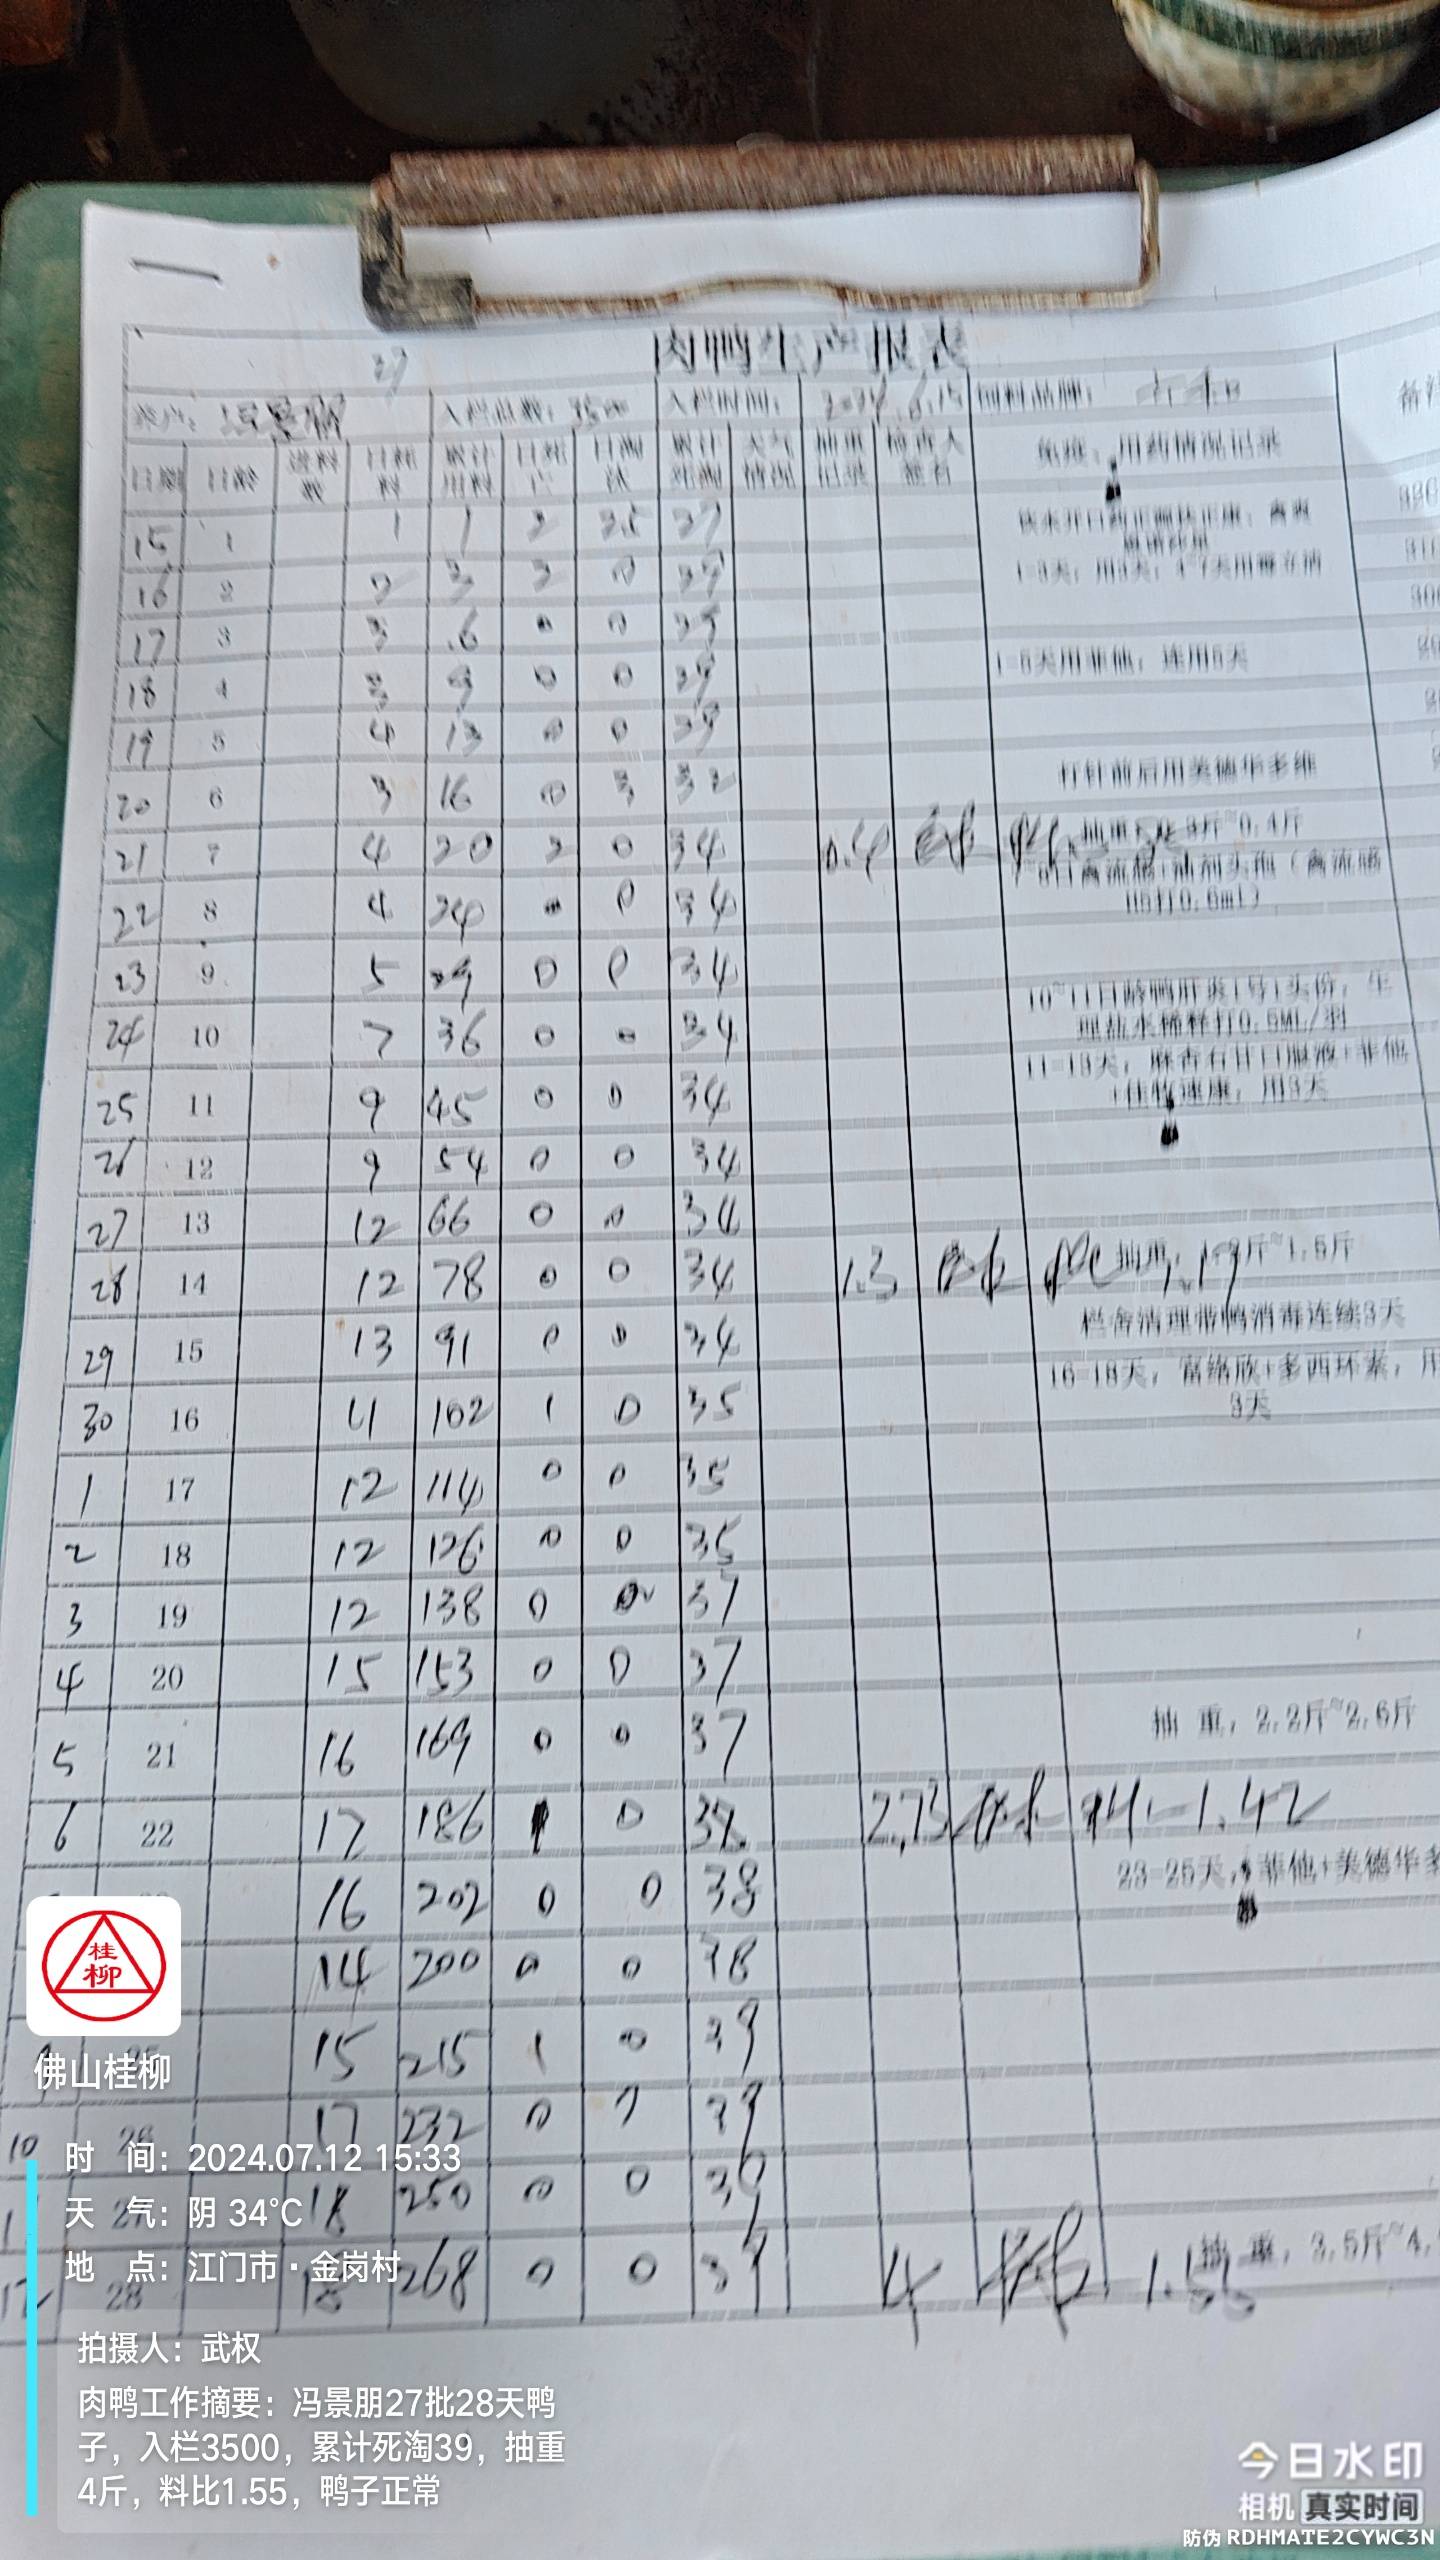 27
肉鸭生产报表
养户：冯景朋 入栏总数：3500 入栏时间：2024.6.15 饲料品牌：
日期 日龄 进料数 日耗料 累计用料 日死亡 日淘汰 累计死淘 天气情况 抽重记录 检查人签名 免疫，用药情况记录
15 1 1 1 2 25 27
16 2 2 3 2 0 29
1-3天，用3天，4-7天用
17 3 3 6 0 0 29
18 4 3 9 0 0 29 1-5天用菲他，连用5天
19 5 4 13 0 0 29
20 6 3 16 0 3 32 打针前后用美德华多维
21 7 4 20 2 0 34 0.4 抽重 斤~0.4斤
22 8 4 24 0 0 34 头孢（禽流感H5打0.6ml）
23 9 5 29 0 0 34
24 10 7 36 0 0 34 10~11日龄鸭肝炎1号1头份，生理盐水稀释打0.5ML/羽
25 11 9 45 0 0 34 11-13天，麻杏石甘口服液+菲他+佳牧速康，用3天
26 12 9 54 0 0 34
27 13 12 66 0 0 34
28 14 12 78 0 0 34 1.3 抽重，斤~1.5斤 1.19
29 15 13 91 0 0 34 栏舍清理带鸭消毒连续3天
30 16 11 102 1 0 35 16-18天，富络欣+多西环素，用3天
1 17 12 114 0 0 35
2 18 12 126 0 0 35
3 19 12 138 0 2 37
4 20 15 153 0 0 37
5 21 16 169 0 0 37 抽 重，2.2斤~2.6斤
6 22 17 186 1 0 38 2.73 料 1.42
16 202 0 0 38 23-25天，菲他+美德华多
14 200 0 0 38
15 215 1 0 39
10 26 17 232 0 0 39
27 18 250 0 0 39
12 28 18 268 0 0 39 4 1.55 抽 重，3.5斤~4.
桂柳
佛山桂柳
时 间：2024.07.12 15:33
天 气：阴 34℃
地 点：江门市·金岗村
拍摄人：武权
肉鸭工作摘要：冯景朋27批28天鸭
子，入栏3500，累计死淘39，抽重
4斤，料比1.55，鸭子正常
今日水印
相机 真实时间
防伪 RDHMATE2CYWC3N